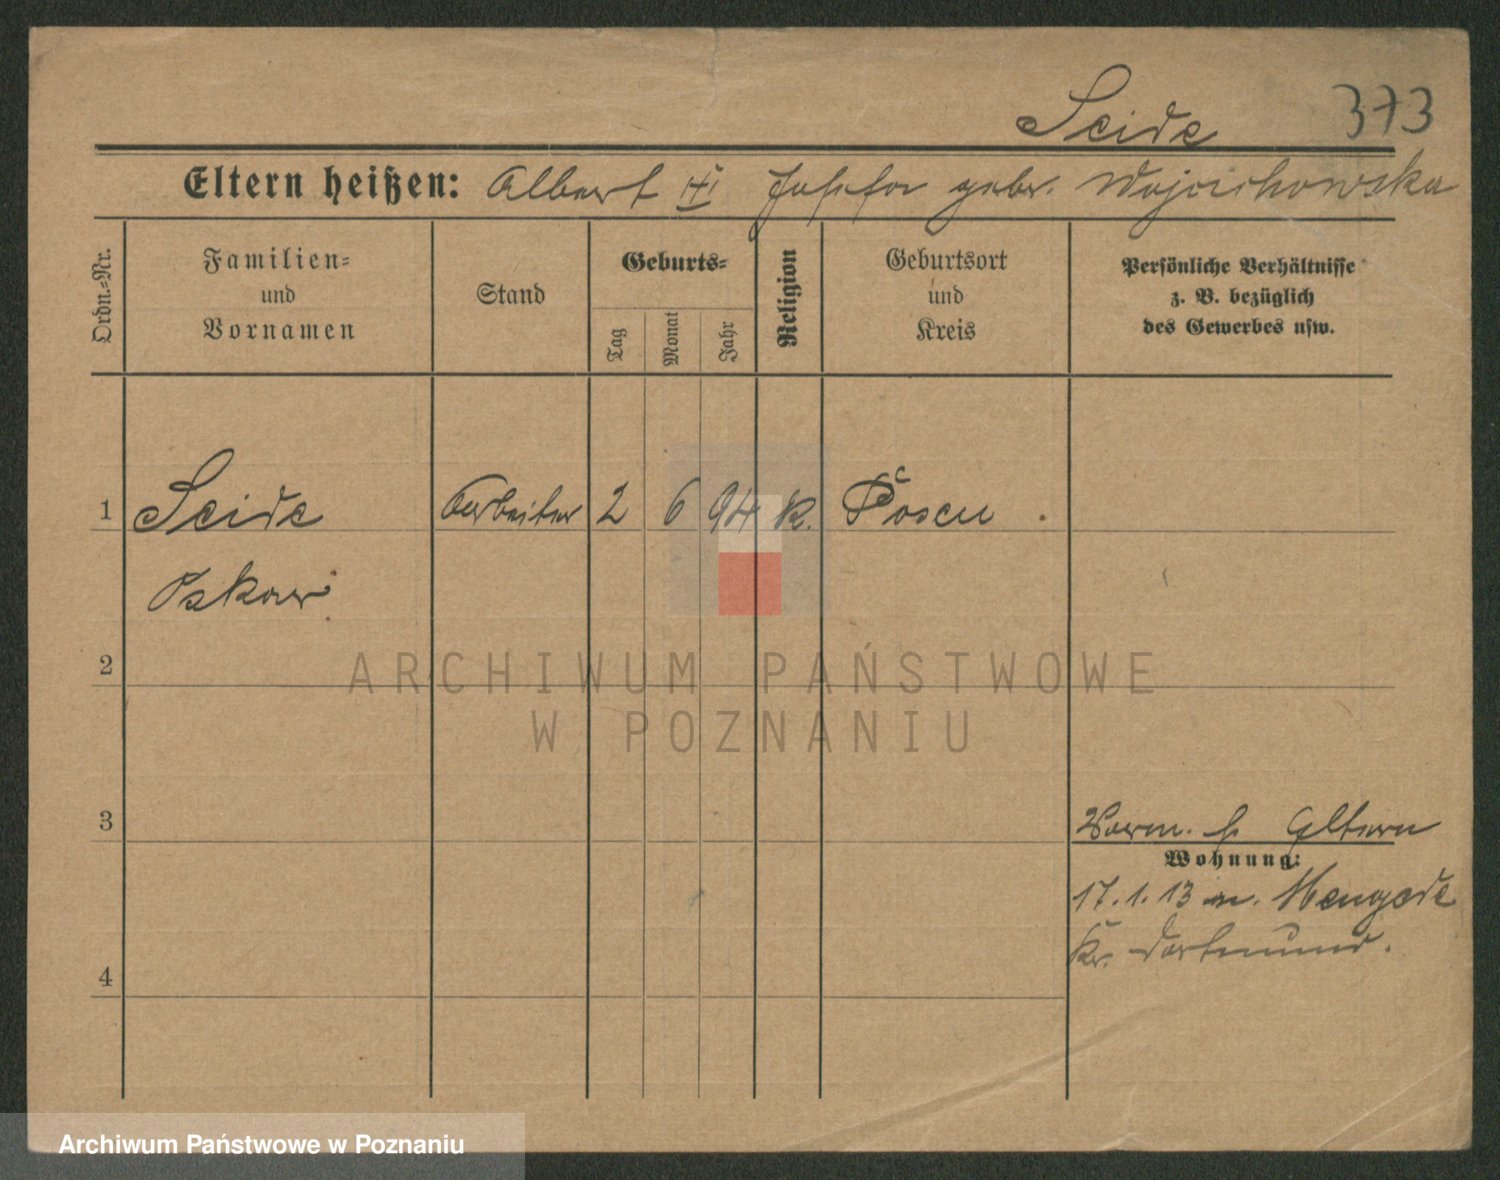 Seide 373
Eltern heißen: Albert Josefa gebr. Wojcichowska
Ordn.-Nr.
Familien-
und
Vornamen
Stand
Geburts-
Tag
Monat
Jahr
Religion
Geburtsort
und
Kreis
Persönliche Verhältnisse
z. B. bezüglich
des Gewerbes usw.
1 Seide Arbeiter 2 6 94 k. Posen .
Oskar
2
ARCHIWUM PAŃSTWOWE
W POZNANIU
3
Vorm. b Eltern
Wohnung:
17.1.13 n. Mengede
Kr. Dortmund.
4
Archiwum Państwowe w Poznaniu